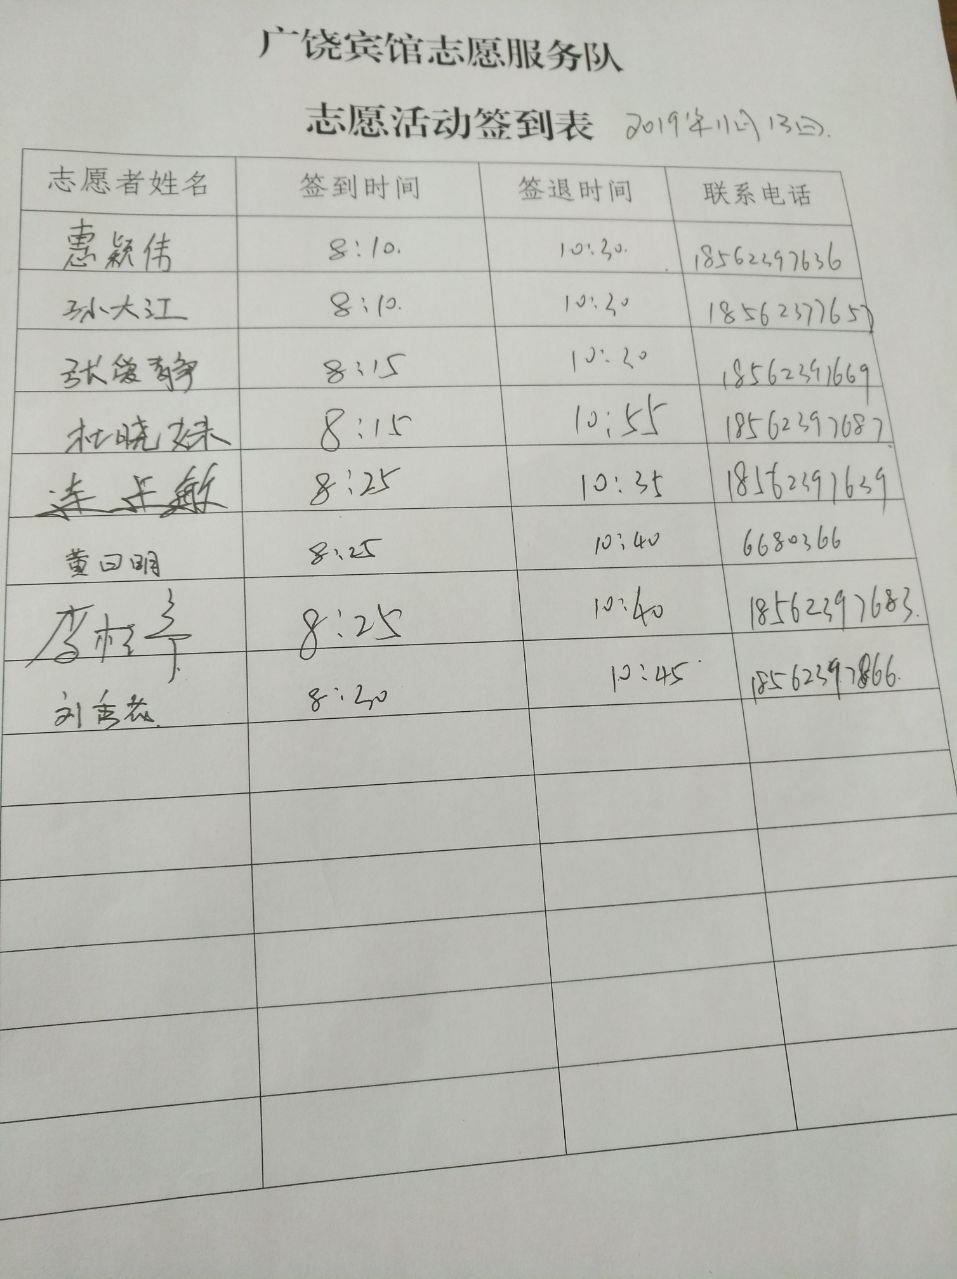 广饶宾馆志愿服务队
志愿活动签到表 2019年11月13日.
志愿者姓名 签到时间 签退时间 联系电话
惠颖伟 8:10. 10:30. 18562397636
孙大江 8:10. 10:30 18562377657
张俊静 8:15 10:30 18562397669
杜晓妹 8:15 10:55 18562397687
8:25 10:35 18562397639
黄日明 8:25 10:40 6680366
李桂 8:25 10:40 18562397683.
刘秀 8:30 10:45 18562397866.